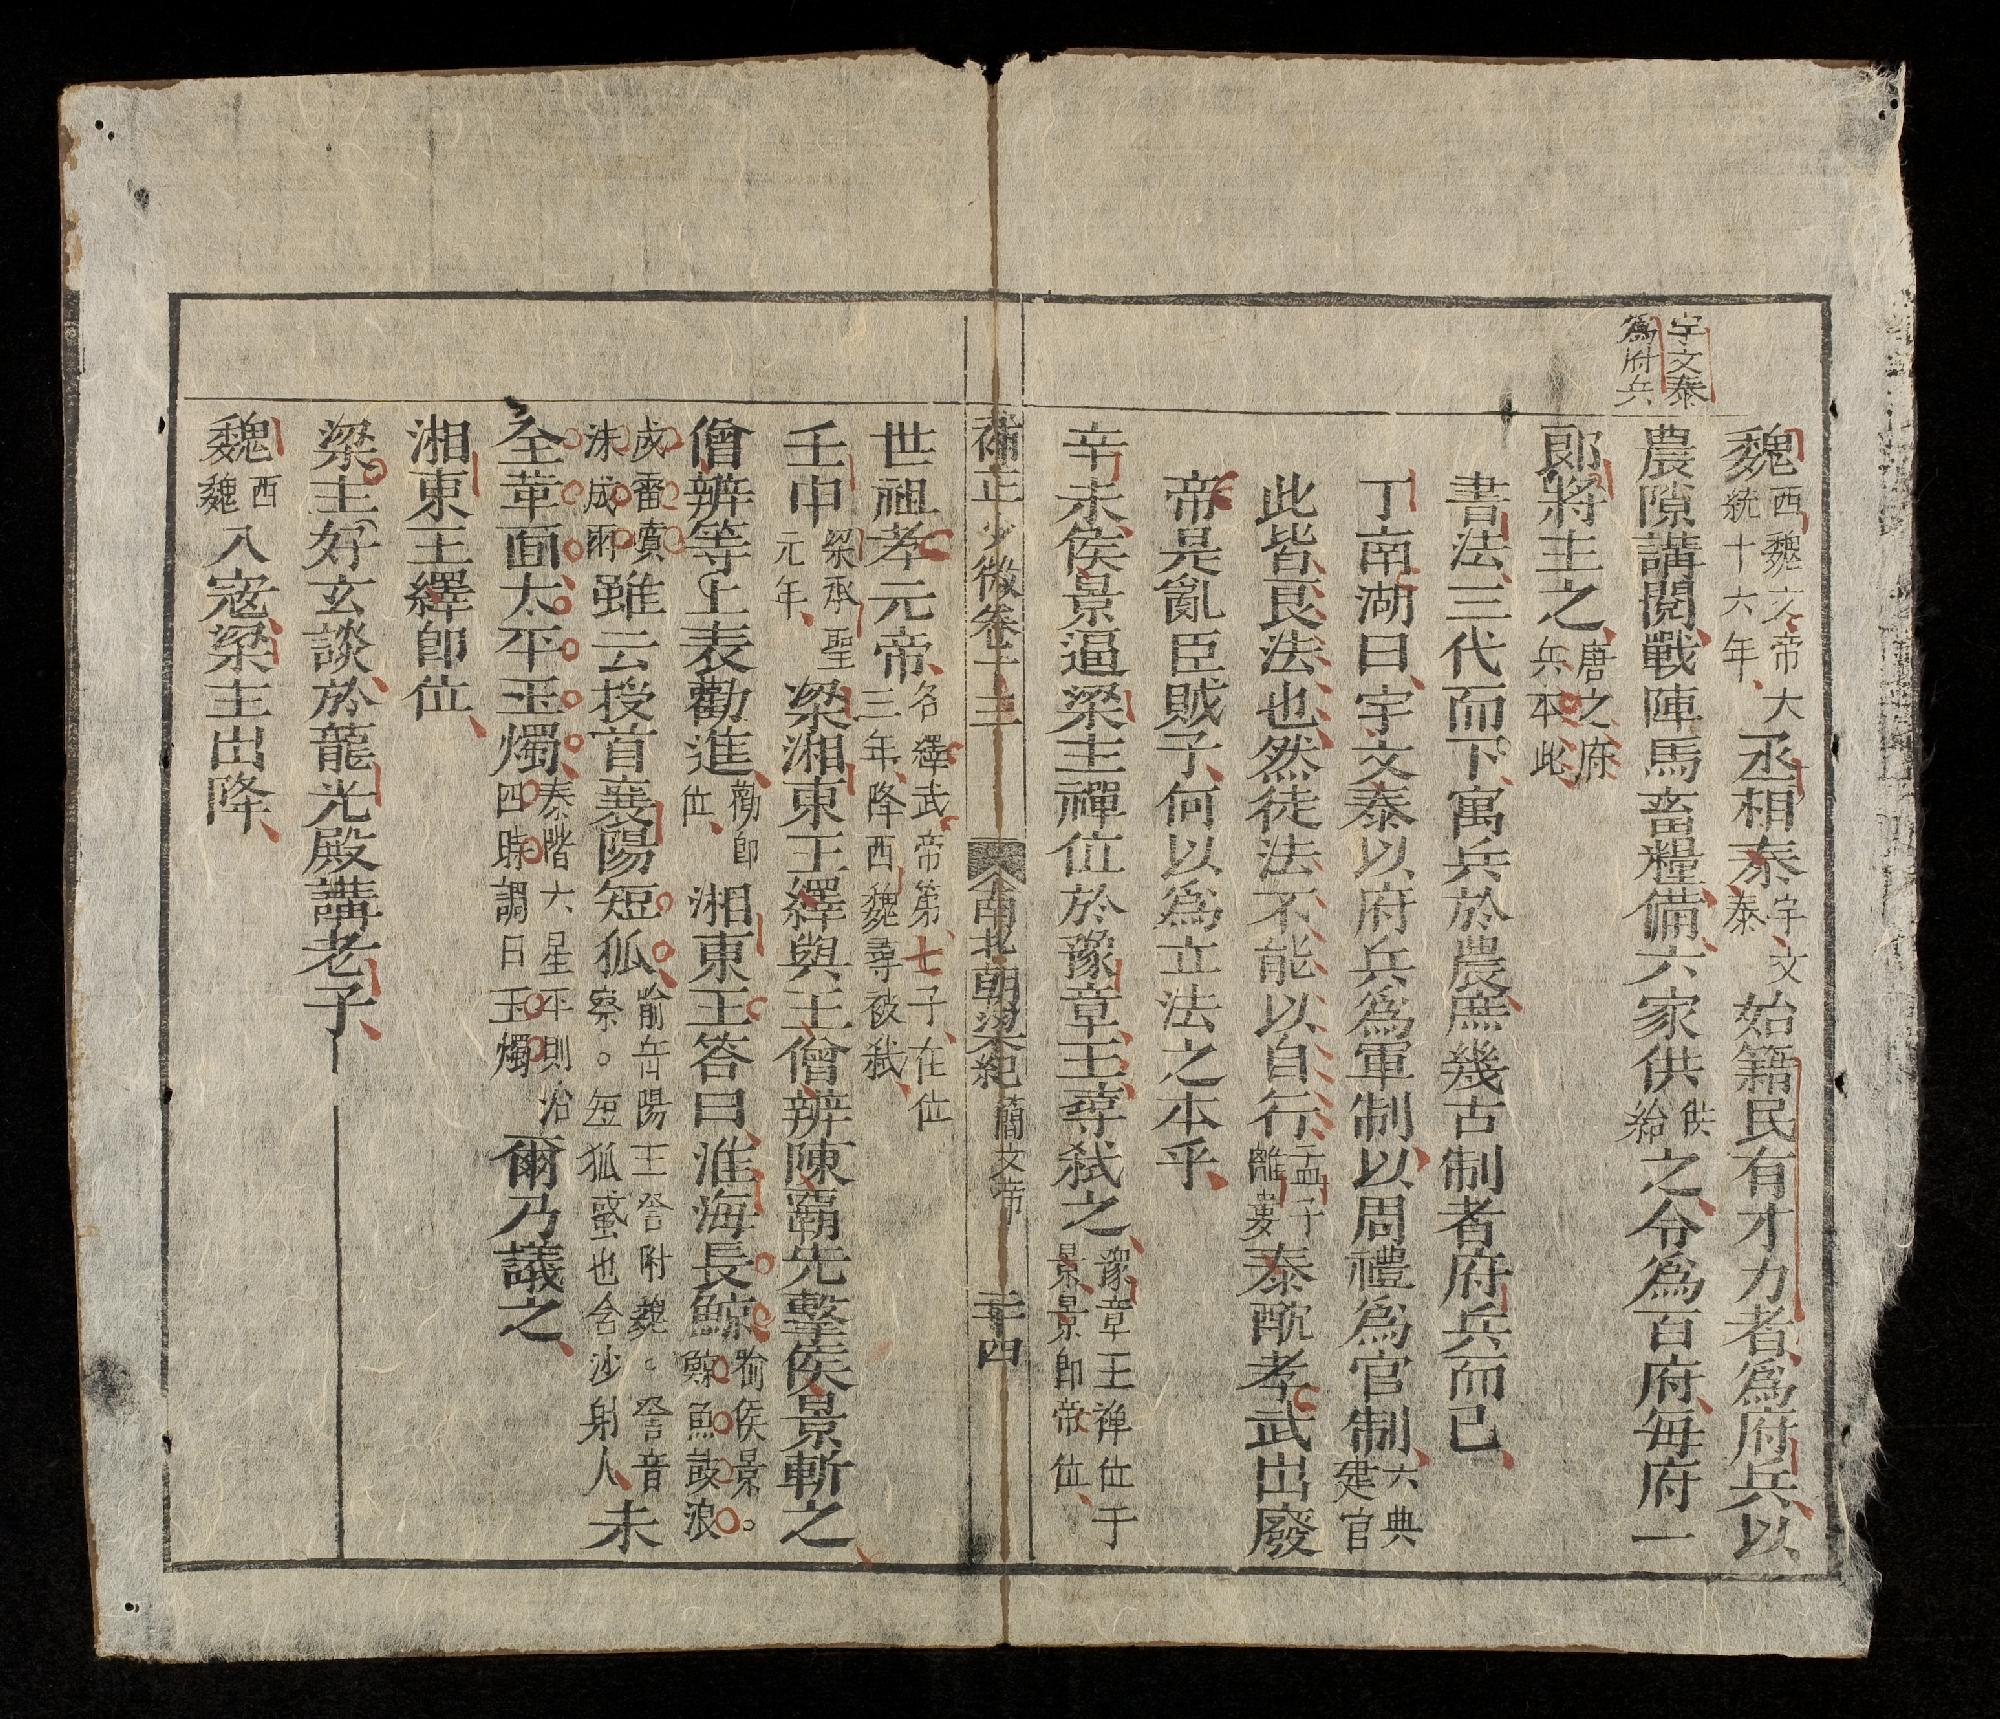 宇文泰
為府兵
魏西魏文帝大統十六年丞相泰宇文泰始籍民有才力者為府兵以
農隙講閱戰陣馬畜糧備六家供供給之令為百府每府一
郎將主之唐之府兵本此
書法三代而下寓兵於農庶幾古制者府兵而已
丁南湖曰宇文泰以府兵為軍制以周禮為官制六典建官
此皆良法也然徒法不能以自行孟子離婁泰酖孝武出廢
帝是亂臣賊子何以為立法之本乎
辛未侯景逼梁主禪位於豫章王尋弒之豫章王禪位于景景即帝位
補正少微卷二十三 南北朝梁紀 簡文帝 二十四
世祖孝元帝名繹武帝第七子在位三年降西魏尋被弒
壬申梁承聖元年梁湘東王繹與王僧辨陳霸先擊侯景斬之
僧辨等上表勸進勸即位湘東王答曰淮海長鯨喻侯景。鯨魚鼓浪
成雷噴沫成雨雖云授首襄陽短狐喻岳陽王詧附魏。詧音察。短狐蜮也含沙射人未
全革面太平玉燭泰階六星平則治四時調曰玉燭爾乃議之
湘東王繹即位
梁主好玄談於龍光殿講老子
魏西魏入寇梁主出降